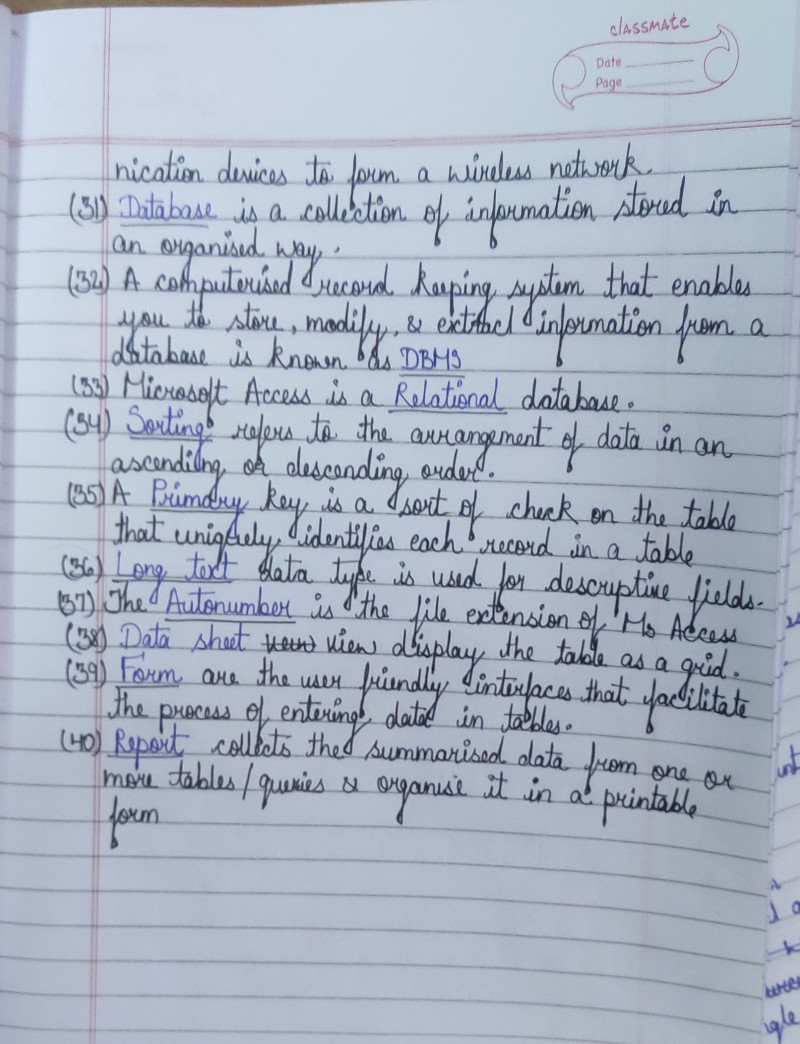 classmate
Date
Page
nication devices to form a wireless network.
(31) Database is a collection of information stored in
an organised way.
(32) A computerised record keeping system that enables
you to store, modify, & extract information from a
database is known as DBMS
(33) Microsoft Access is a Relational database.
(34) Sorting refers to the arrangement of data in an
ascending or descending order.
(35) A Primary key is a sort of check on the table
that uniquely identifies each record in a table
(36) Long text data type is used for descriptive fields.
(37) The Autonumber is the file extension of Ms Access
(38) Data sheet view display the table as a grid.
(39) Form are the user friendly interfaces that facilitate
the process of entering data in tables.
(40) Report collects the summarised data from one or
more tables/queries & organise it in a printable
form